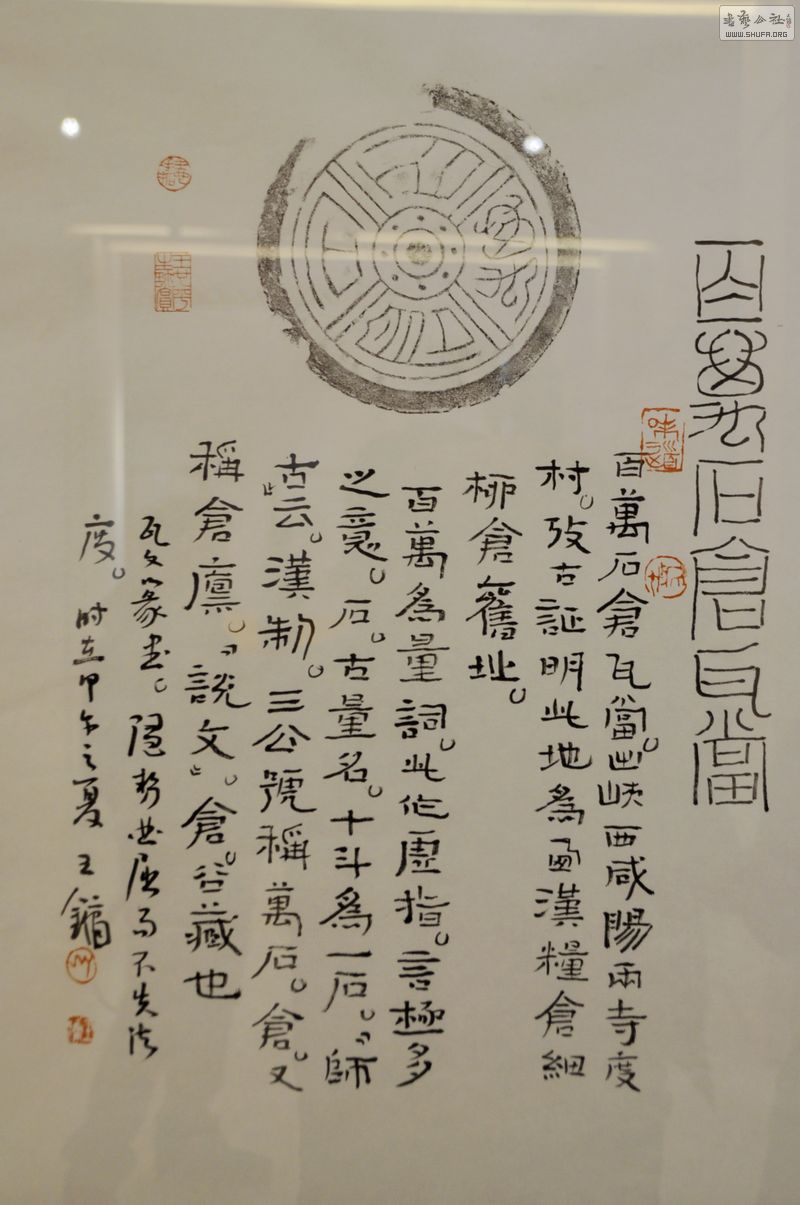 百萬石倉瓦當
百萬石倉瓦當。出峽西咸陽兩寺度
村。攷古証明此地為西漢糧倉細
柳倉舊址。
百萬為量詞。此作虛指。言極多
之意。石。古量名。十斗為一石。『師
古』云。漢制。三公號稱萬石。倉。又
稱倉廩。『說文』。倉。谷藏也
瓦文篆書。隨形曲屈而不失法
度。時在甲午之夏 王鏞
味道
百萬石倉
書藝公社
WWW.SHUFA.ORG